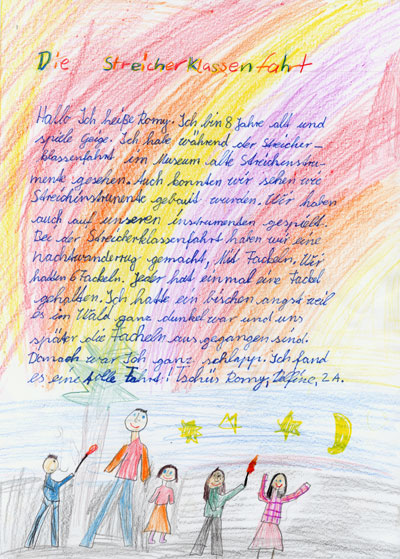 Die Streicherklassenfahrt
Hallo Ich heiße Romy. Ich bin 8 Jahre alt und
spiele Geige. Ich habe während der Streicher-
klassenfahrt im Museum alte Streichinstru-
mente gesehen. Auch konnten wir sehen wie
Streichinstrumente gebaut wurden. Wir haben
auch auf unseren instrumenten gespielt.
Bei der Streicherklassenfahrt haben wir eine
nachtwanderrug gemacht, Mit Fackeln. Wir
hatten 6 Fackeln. Jeder hat einmal eine Fackel
gehalten. Ich hatte ein bischen angst weil
es im Wald ganz dunkel war und uns
später die Facheln aus gegangen sind.
Danach war Ich ganz schlapp. Ich fand
es eine tolle Fahrt! Tschüs Romy, 2A.